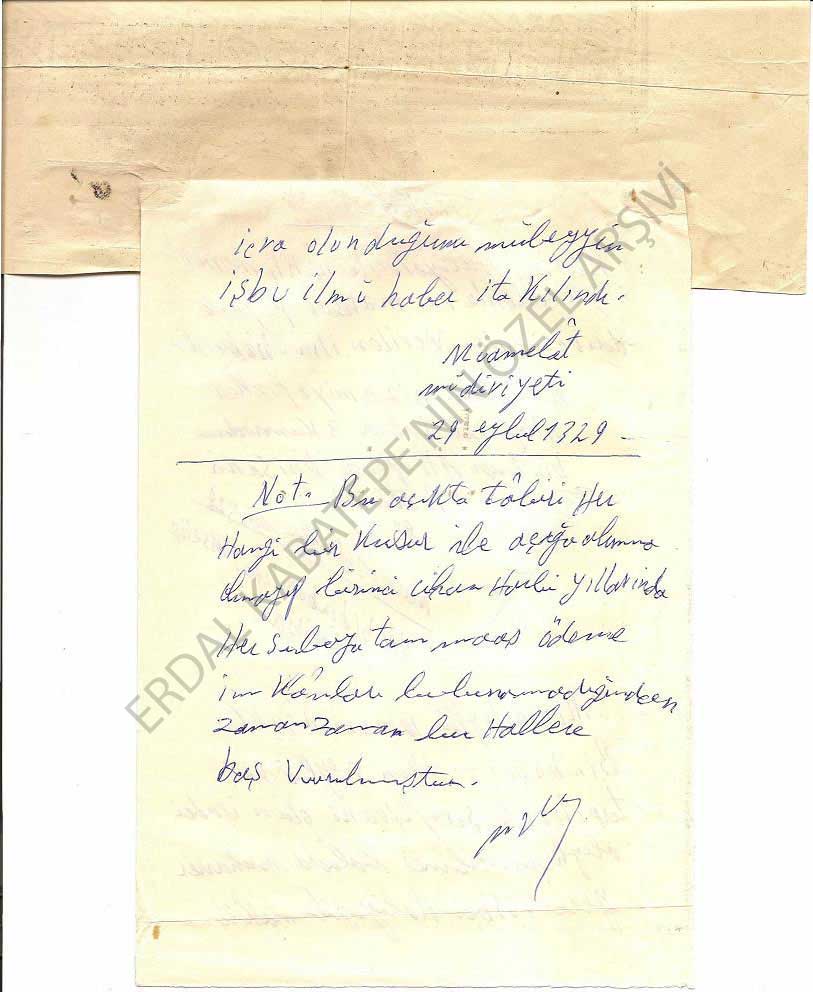 icra olunduğunu mübeyyin
işbu ilmü haber ita Kılındı.
Muamelât
müdiriyeti
29 eylul 1329 -
Not. Bu açıkta tâbiri Her
Hangi bir Kusur ile açığa alınma
olmayıp birinci cihan Harbi yıllarında
Her subaya tam maaş ödeme
imkânları bulunamadığından
zaman zaman bu Hallere
baş Vurulmuştur.
ERDAL KABATEPE'NİN ÖZEL ARŞİVİ